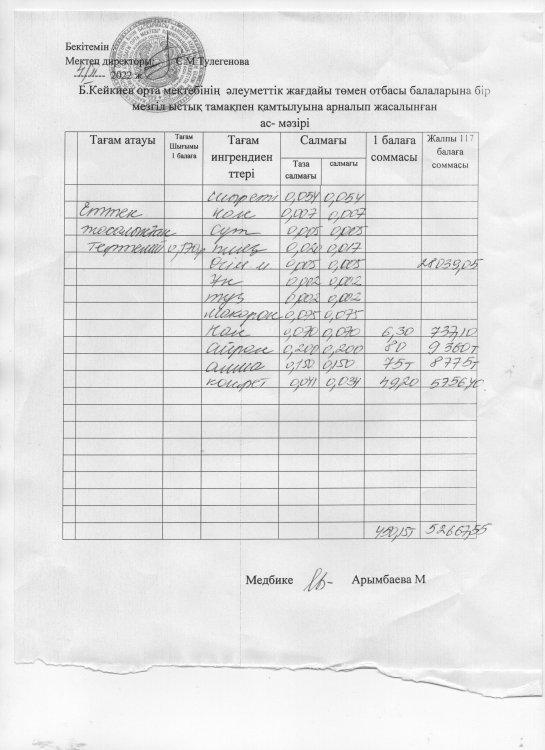 Бекітемін
Мектеп директоры: С.М Тулегенова
2022 ж
Б.Кейкиев орта мектебінің әлеуметтік жағдайы төмен отбасы балаларына бір
мезгіл ыстық тамақпен қамтылуына арналып жасалынған
ас- мәзірі
Тағам атауы Тағам Шығымы 1 балаға Тағам ингрендиен ттері Салмағы 1 балаға соммасы Жалпы 117 балаға соммасы
Таза салмағы салмағы
0,054 0,054
Еттен нан 0,007 0,007
сүт 0,005 0,005
Тефтелий 0,170г пияз 0,020 0,017
Өсім м 0,005 0,005 28039,05
Ұн 0,002 0,002
тұз 0,002 0,002
макарон 0,075
нан 0,070 0,070 6,30 737,10
айран 0,200 0,200 80 9360т
алма 0,150 0,150 75т 8775т
конфет 0,041 0,034 49,20 5756,40
450,15т 52667,55
Медбике Арымбаева М